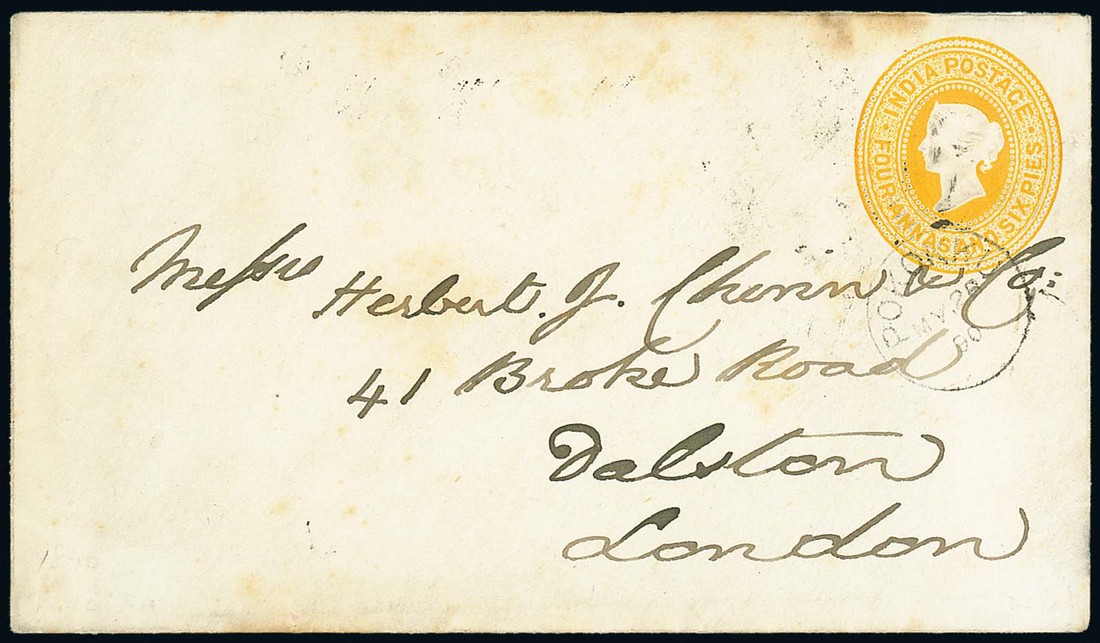 INDIA POSTAGE
FOUR ANNAS AND SIX PIES
MY 28
90
Messrs Herbert. J. Chinn & Co:
41 Broke Road
Dalston
London